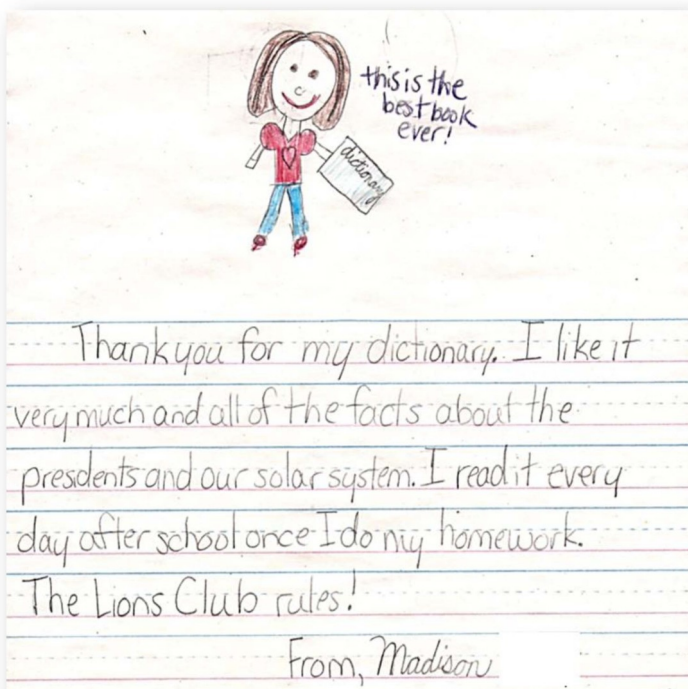 this is the
best book
ever!
dictionary
Thank you for my dictionary. I like it
very much and all of the facts about the
presidents and our solar system. I read it every
day after school once I do my homework.
The Lions Club rules!
From, Madison